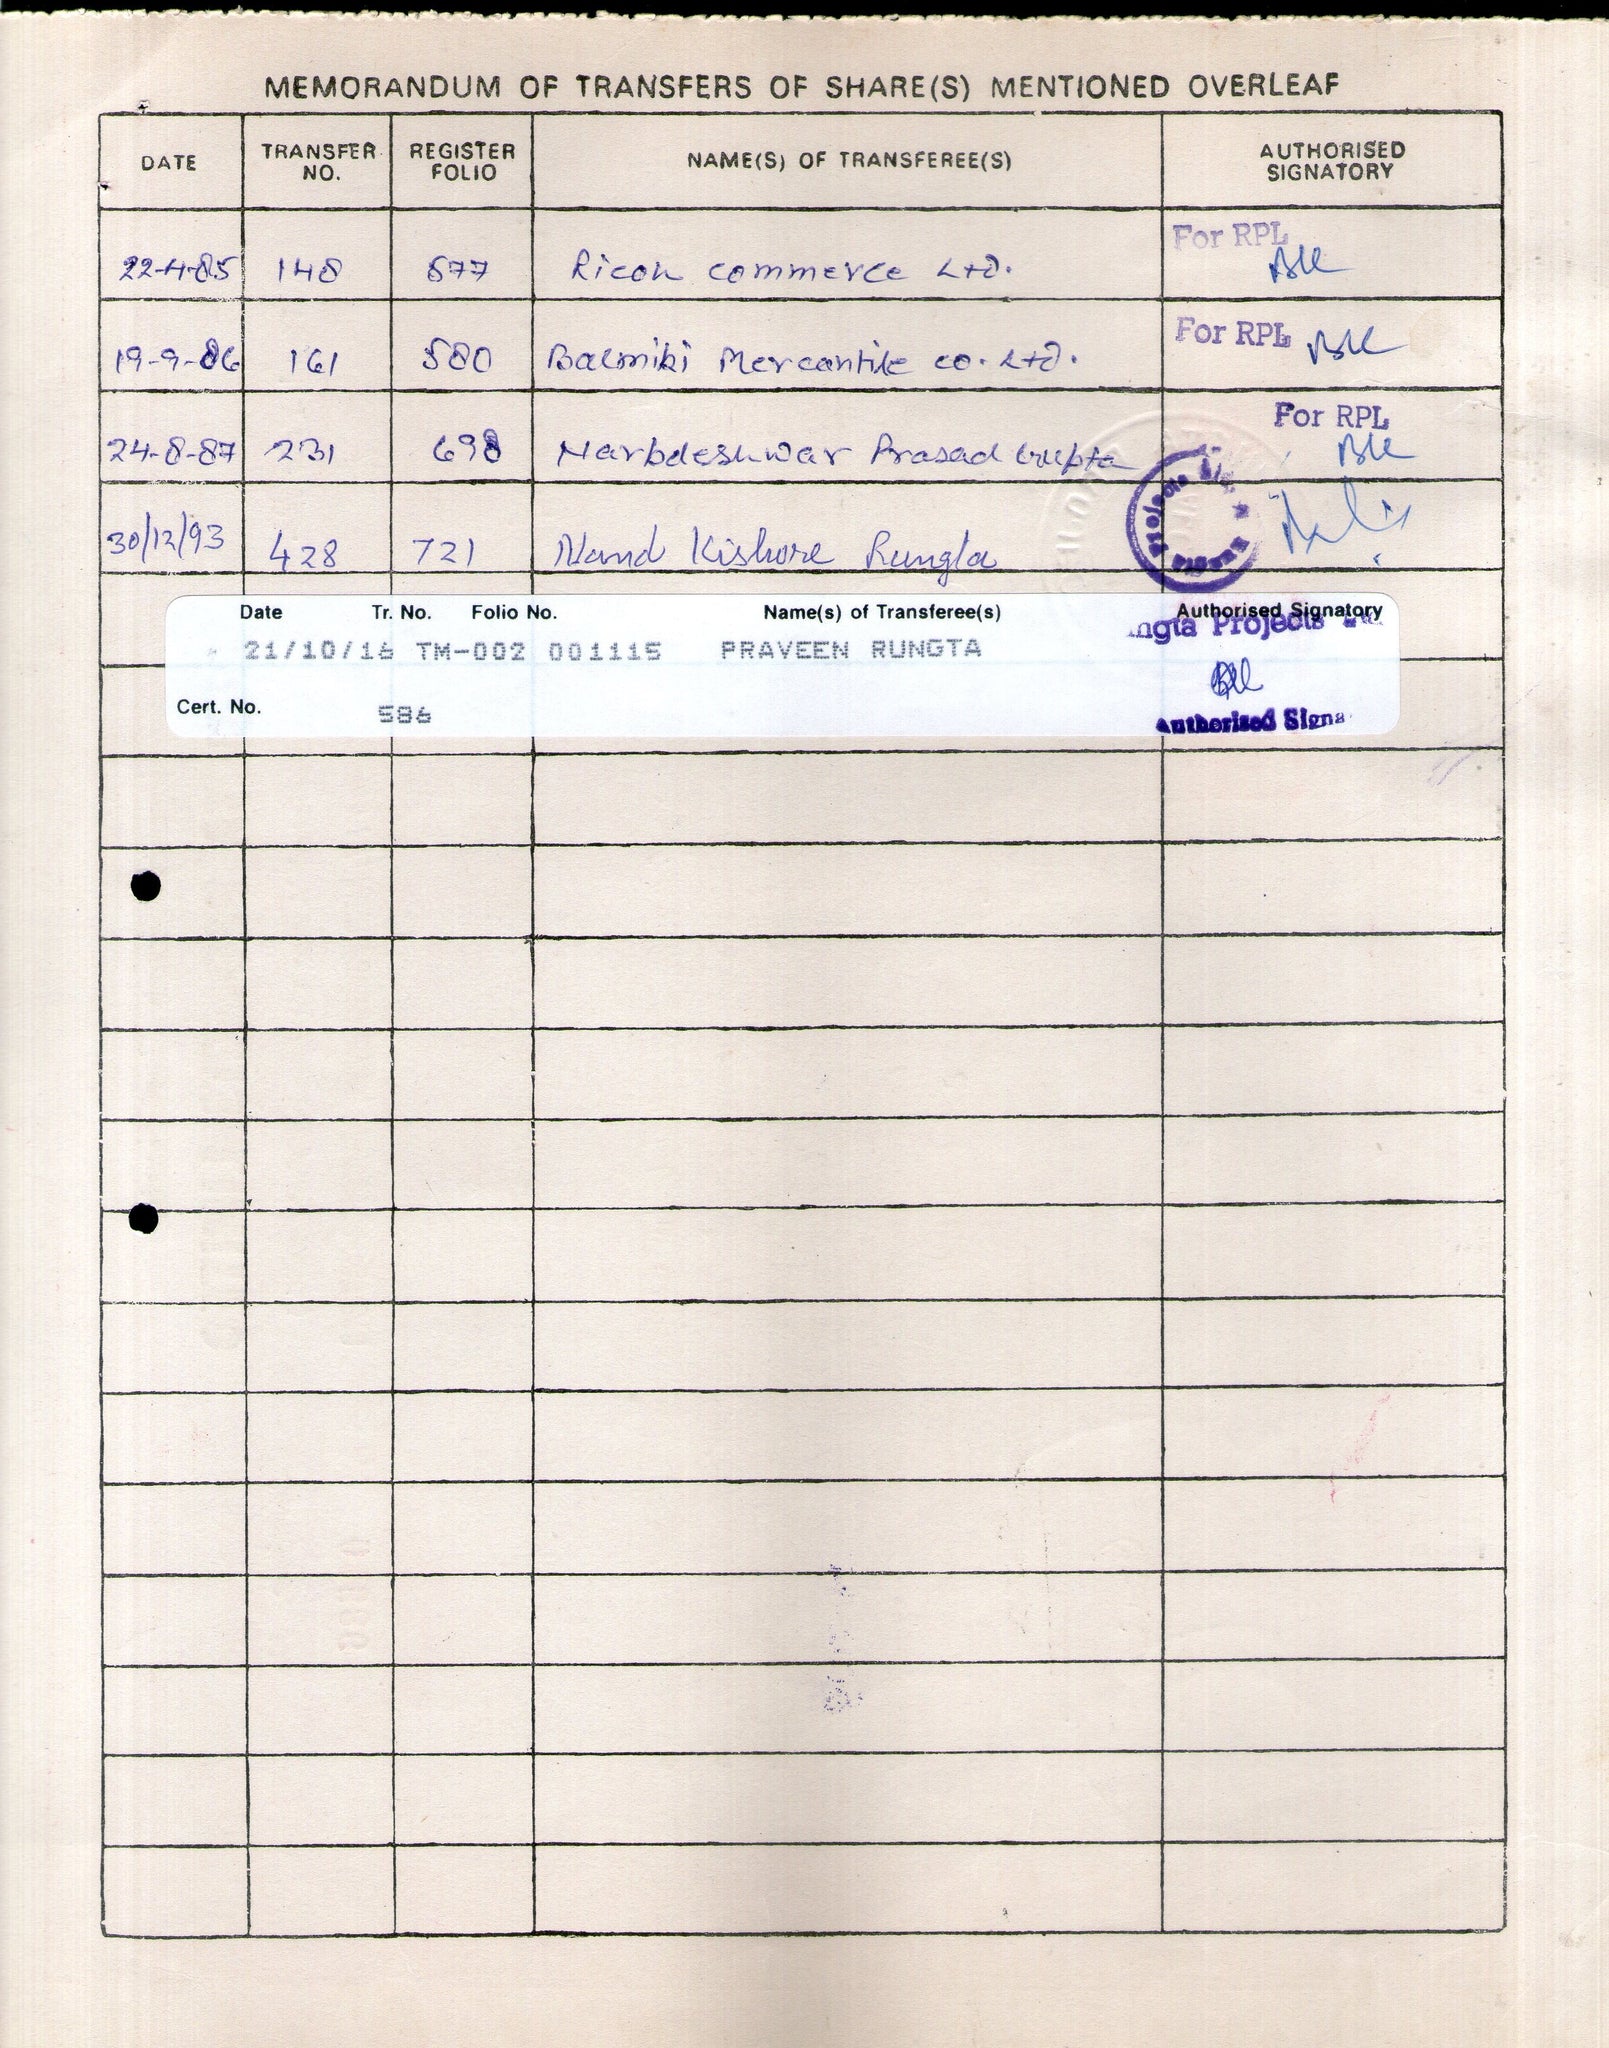 MEMORANDUM OF TRANSFERS OF SHARE(S) MENTIONED OVERLEAF
DATE TRANSFER NO. REGISTER FOLIO NAME(S) OF TRANSFEREE(S) AUTHORISED SIGNATORY
For RPL
22-4-85 148 577 Ricon Commerce Ltd.
For RPL
19-9-86 161 580 Balmiki Mercantile Co. Ltd.
For RPL
24-8-87 231 698 Narbdeshwar Prasad Gupta
Rungta Projects Ltd. ★
30/12/93 428 721 Nand Kishore Rungta
Date Tr. No. Folio No. Name(s) of Transferee(s) Authorised Signatory
ngta Projects
21/10/16 TM-002 001115 PRAVEEN RUNGTA
Cert. No. 586
Authorised Signa